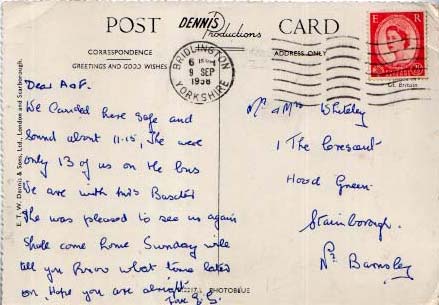 POST Dennis Productions CARD
CORRESPONDENCE
ADDRESS ONLY
GREETINGS AND GOOD WISHES
BRIDLINGTON
6
9 SEP
1958
YORKSHIRE
E R
Gt. Britain
E. T. W. Dennis & Sons, Ltd., London and Scarborough.
Dear A & F.
We landed here safe and
sound about 11-15, There were
only 13 of us on the bus
We are with Mrs
She was pleased to see us again
Shall come home Sunday will
tell you know what time later
on. Hope you are alright
Love
Mr & Mrs Whiteley
1 The Crescent
Hood Green
Stainborough
Nr Barnsley
PHOTOBLUE